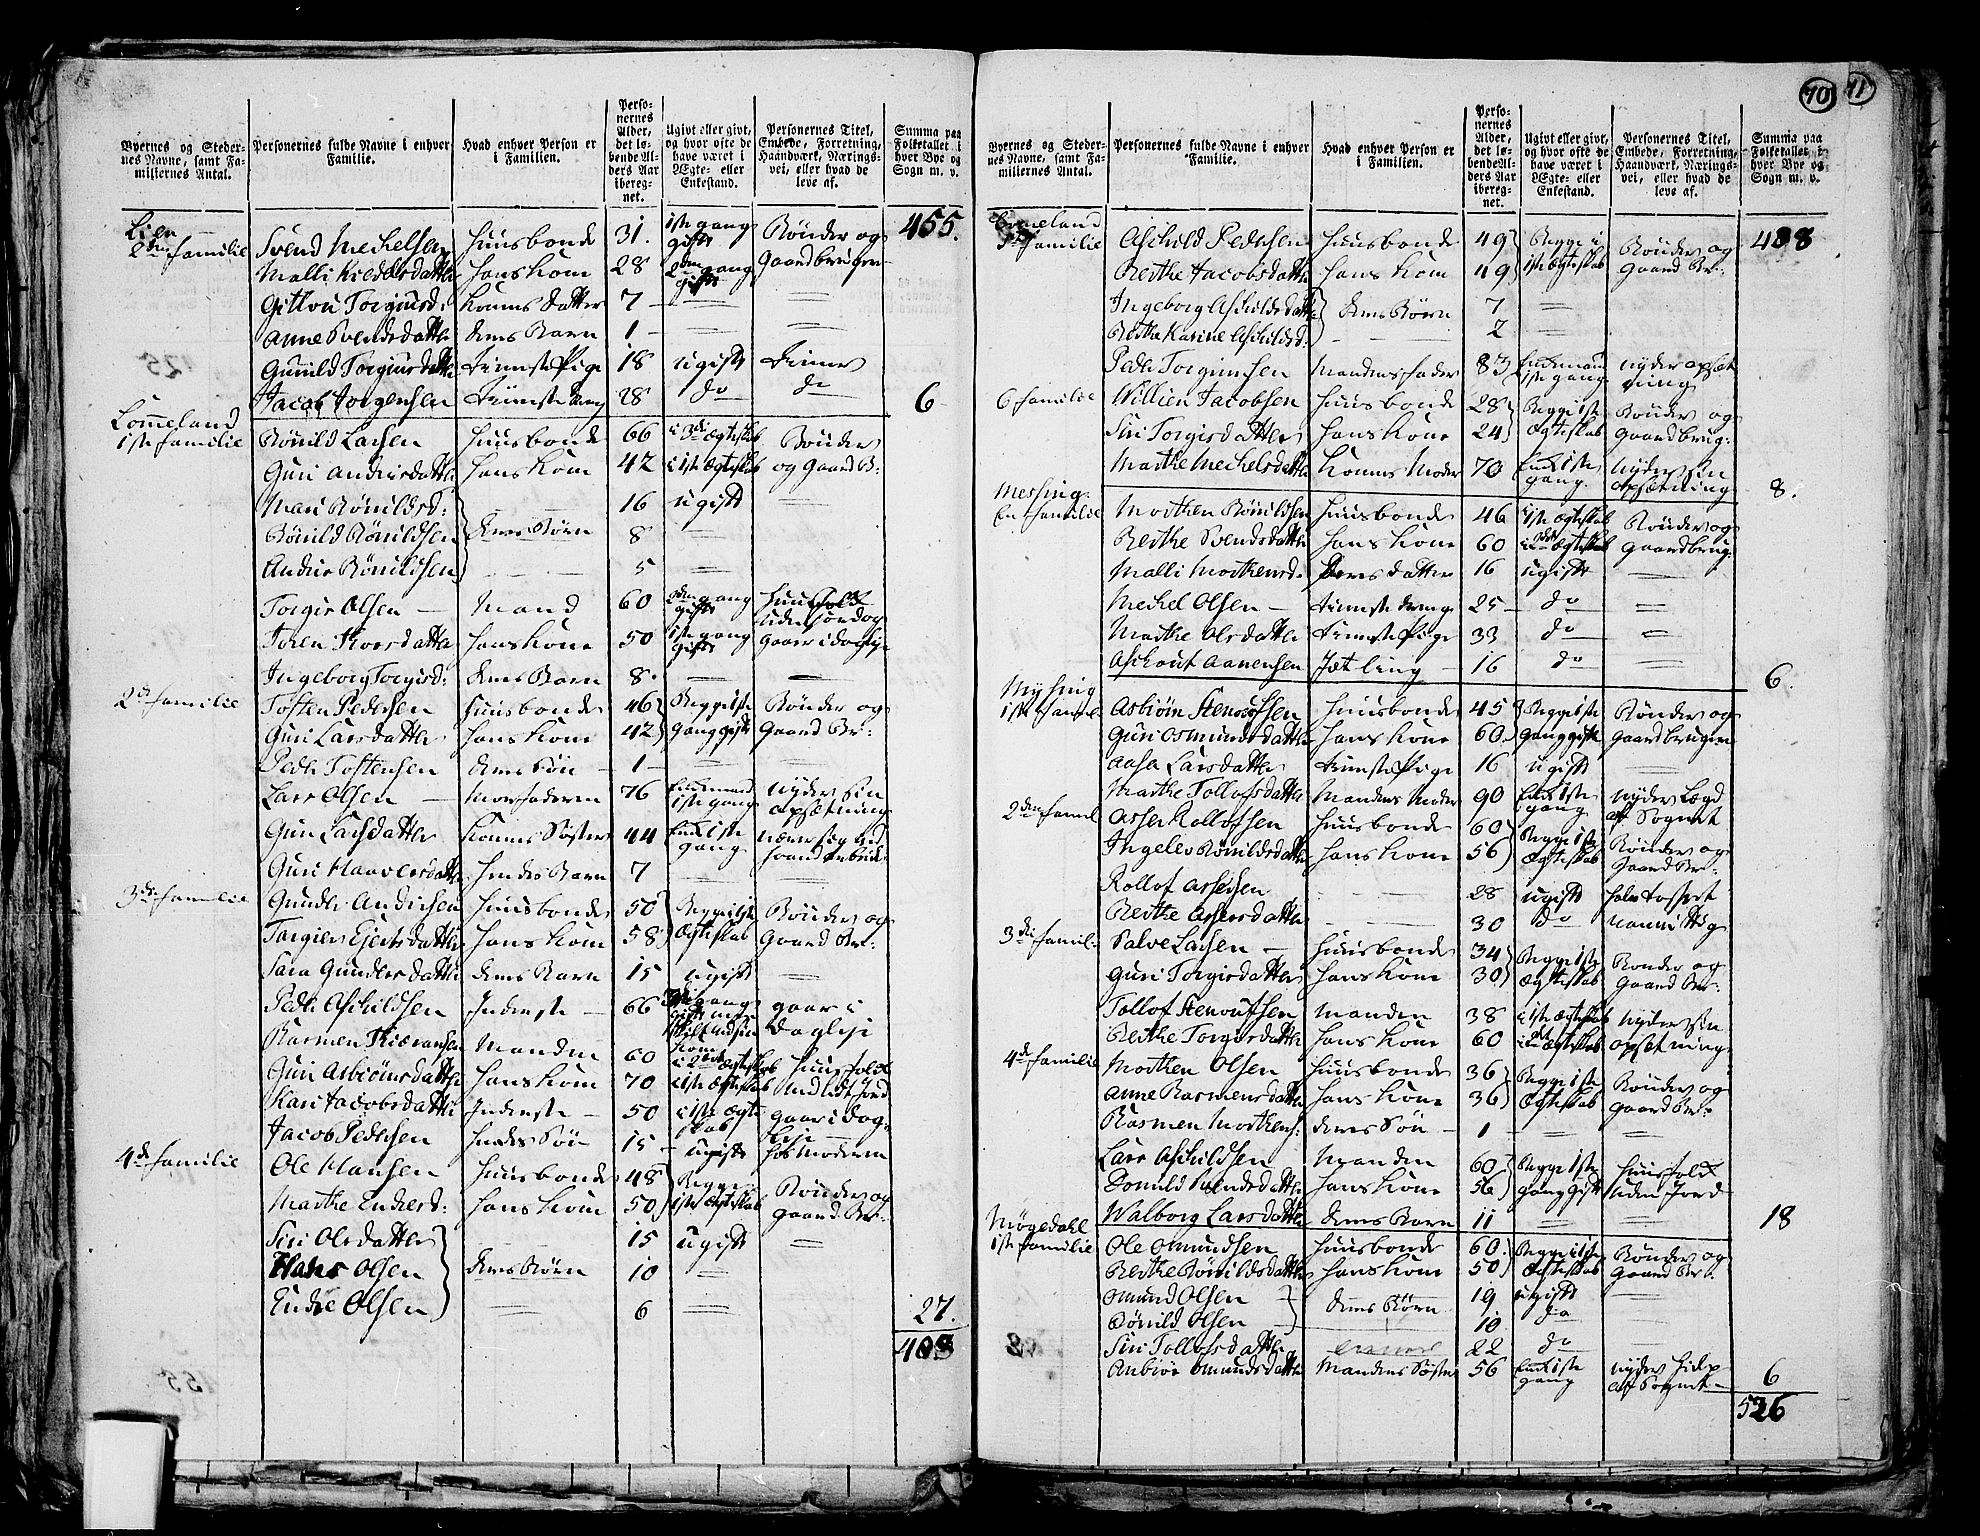 70 71
Byernes og Stedernes Navne, samt Familiernes Antal.
Personernes fulde Navne i enhver Familie.
Hvad enhver Person er i Familien.
Personernes Alder, det løbende Alders Aar iberegnet.
Ugivt eller givt, og hvor ofte de have været i Ægte- eller Enkestand.
Personernes Titel, Embede, Forretning, Haandværk, Næringsvei, eller hvad de leve af.
Summa paa Folketallet i hver Bye og Sogn m. v.
Lien 455.
2den Familie Svend Mechelsen Huusbonde 31. 1ste gang gift Bønder og
Malli Kieddelsdatter hans Kone 28 2den gang gift Gaardbruger
Gitlou Torgiusd: Konens Datter 7 — —
Anne Svendsdatter deres Barn 1 — —
Gunild Torgiusdatter Tieneste Pige 18 ugift Tiener
Jacob Jorgensen Tieneste Dreng 28 do do 6
Lommeland
1ste Familie Rønild Larsen Huusbonde 66 i 3die Ægteskab Bønder
Guri Andersdatter hans Kone 42 i 1ste Ægteskab og Gaard B:
Mari Rønildsd: 16 ugift —
Rønild Rønildsen deres Børn 8 —
Andres Rønildsen 5 —
Torgir Olsen Mand 60 2den gang gift Huusfolk
Toren Roersdatter hans Kone 50 1ste gang gift uden Jord og gaar i dagleje
Ingeborg Torgirsd: deres Barn 8. — —
2den Familie Tosten Pedersen Huusbonde 46 Begge 1ste Bønder og
Guri Larsdatter hans Kone 42 gang gift Gaard Br:
Peder Tostensen deres Søn 1 — —
Lars Olsen Morfaderen 76 Enkemand 1ste gang nyder sin opsætning
Guri Larsdatter Konens Søster 44 Enke 1ste gang nærer sig ved haandarbeide
Guri Haaversdatter hendes Barn 7 — —
3die Familie Gunder Andersen Huusbonde 50 Begge i 1ste Bønder og
Torgier Ejersdatter hans Kone 58 Ægteskab Gaard Br:
Sara Gundersdatter deres Barn 15 ugift —
Peder Aschildsen Inderste 66 gaar i dagleje
Rasmen Manden 60 i 2det Ægteskab Huusfolk
Guri Asbiønsdatter hans Kone 70 i 1ste Ægteskab med lidt Jord
Kari Jacobsdatter Inderste 50 i 1ste Ægteskab gaar i dagleje
Jacob Pedersen hendes Søn 15 ugift hos Moderen
4de Familie Ole Hansen Huusbonde 48 Begge Bønder og
Marthe Endresd: hans Kone 50 1ste Ægteskab Gaard Br:
Siri Olsdatter 15 ugift —
Hans Olsen deres Børn 10 —
Endre Olsen 6 — 27.
488
Byernes og Stedernes Navne, samt Familiernes Antal.
Personernes fulde Navne i enhver Familie.
Hvad enhver Person er i Familien.
Personernes Alder, det løbende Alders Aar iberegnet.
Ugivt eller givt, og hvor ofte de have været i Ægte- eller Enkestand.
Personernes Titel, Embede, Forretning, Haandværk, Næringsvei, eller hvad de leve af.
Summa paa Folketallet i hver Bye og Sogn m. v.
Lommeland
5te Familie Aschild Pedersen Huusbonde 49 Begge i Bønder og 488
Berthe Jacobsdatter hans Kone 49 1ste Ægteskab Gaard Br:
Ingeborg Aschildsdatter deres Børn 7 —
Berthe Karine Aschildsd: 2 —
Peder Torgiusen Mandens fader 83 Enkemand 1ste gang nyder opsætning
6 Familie Willien Jacobsen Huusbonde 28 Begge 1ste Bønder og
Siri Torgisdatter hans Kone 24 Ægteskab Gaardbrug:
Marthe Mechelsdatter Konens Moder 70 Enke 1ste gang. nyder sin opsætning 8.
Messing.
En Familie Morthen Rønildsen Huusbonde 46 i 1ste Ægteskab Bønder og
Berthe Svendsdatter hans Kone 60 i 2det Ægteskab Gaardbrug
Malli Morthensd. deres datter 16 ugift —
Mechel Olsen Tieneste dreng 25 do —
Marthe Olsdatter Tieneste Pige 33 do —
Aschout Aanensen Jetling 16 do — 6.
Mysing
1ste Famil. Asbiørn Stenoutsen Huusbonde 45 Begge 1ste Bønder og
Guri Osmundsdatter hans Kone 60 gang gift Gaardbruger
Aasa Larsdatter Tieneste Pige 16 ugift —
Marthe Tollofsdatter Mandens Moder 90 Enke 1ste gang nyder Lægd af Sognet
2den Famil Asser Rollofsen Huusbonde 60 Begge 1ste Bønder og
Ingelev Rønildsdatter hans Kone 56 Ægteskab Gaard Br:
Rollof Assersen 28 ugift
Berthe Assersdatter 30 do vanvittig
3die Famil: Salve Larsen Huusbonde 34 Begge 1ste Bønder og
Guri Torgirsdatter hans Kone 30 Ægteskab Gaard Br:
Tollof Stenoutsen Manden 38 i 1ste Ægteskab nyder sin
Berthe Torgersdatter hans Kone 60 i 2det Ægteskab opsetning
4de Familie Morthen Olsen Huusbonde 36 Begge 1ste Bønder og
Anne Rasmensdatter hans Kone 36 Ægteskab Gaard Br:
Rasmen Morthens: deres Søn 1 —
Lars Aschildsen Manden 60 Begge 1ste Huusfolk
Gonuld Svendsdatter hans Kone 56 gang gift uden Jord
Walborg Larsdatter deres Barn 11 — — 18
Møgedahl
1ste Familie Ole Omundsen Huusbonde 60 Begge i 1ste Bønder og
Berthe Rønildsdatter hans Kone 50 Ægteskab Gaard Br.
Omund Olsen deres Børn 19 ugift
Rønild Olsen 10 do
Siri Tollofsdatter 22 do
Anbior Omundsdatter Mandens Søster 56 Enke 1ste gang nyder hielp af Sognet 6
526